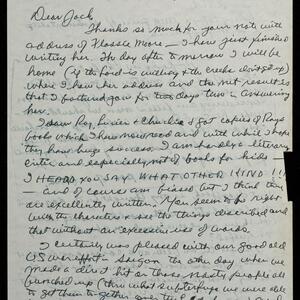 Dear Jack
Thanks so much for your note with
address of Flossie Moore — I have just finished
writing her. The day after to morrow I will be
home (If the ford is willing & the creeks don't get up)
where I have her address and the net result is
that I bothered you for two days two — answering
her.
I saw Roy, Susie & and got copies of Roys
books which I have now read and with which I hope
they have huge success. I am hardly a literary
critic and especially not of books for kids —
I HEARD YOU SAY WHAT OTHER KIND!!!
— and of course am biased but I think they
are excellently written. You seem to be right
with the characters & see the things described and
that without an excessive use of words.
I certainly was pleased with our good old
US war effort — Saigon the other day when we
made a direct hit on those nasty people all
bunched up (thru what subterfuge we were able
to get them together over the